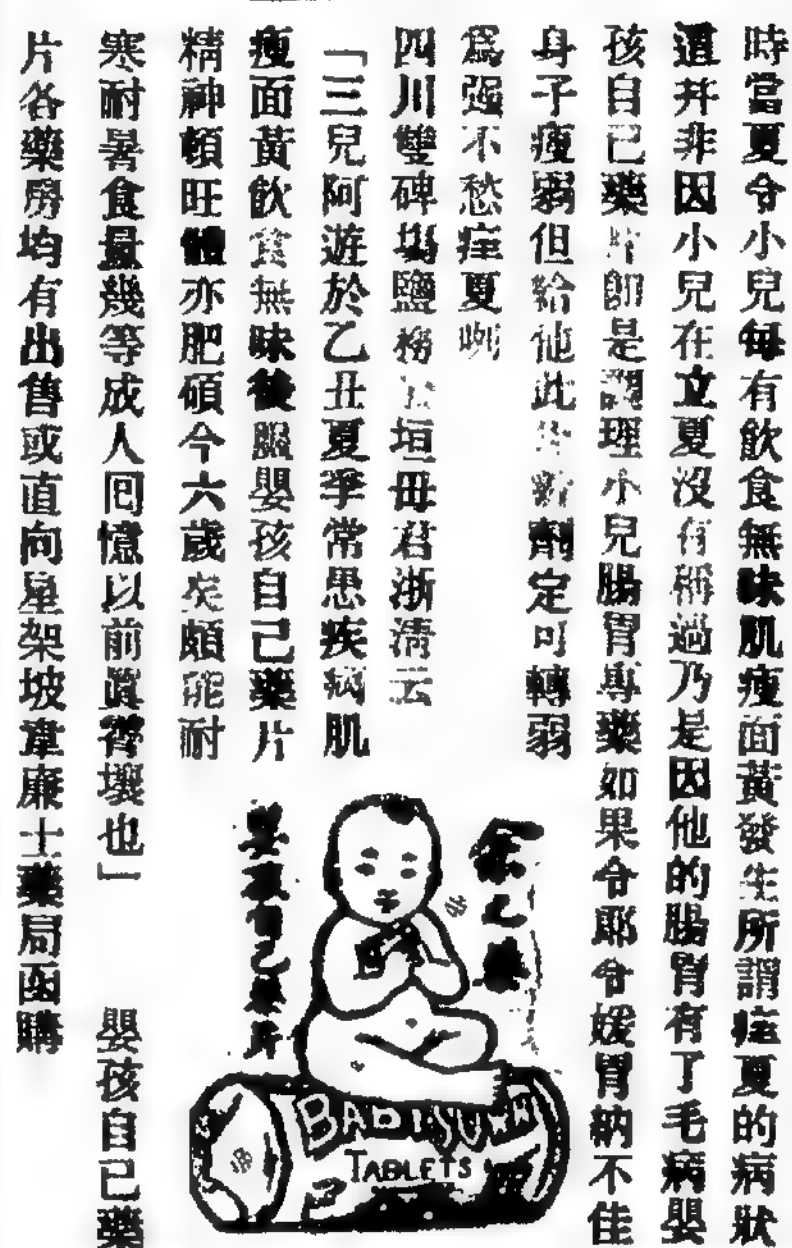 時當夏令小兒每有飲食無味肌瘦面黃發生所謂疰夏的病狀
這并非因小兒在立夏沒有稱過乃是因他的腸胃有了毛病嬰
孩自己藥片卽是調理小兒腸胃專藥如果令郎令媛胃納不佳
身子瘦弱但給他此 劑定可轉弱
爲强不愁疰夏咧
四川雙碑塲鹽務 垣毌君浙淸云
「三兒阿遊於乙丑夏季常患疾病肌
瘦面黃飲食無味後服嬰孩自己藥片
精神頓旺體亦肥碩今六歲矣頗能耐
寒耐暑食量幾等成人回憶以前眞霄壤也」 嬰孩自己藥
片各藥房均有出售或直向星架坡韋廉士藥局函購
嬰孩自己藥片
TABLETS